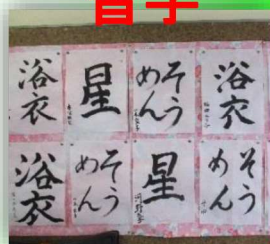 習字
浴衣
星
そうめん
浴衣
浴衣
そうめん
星
そうめん